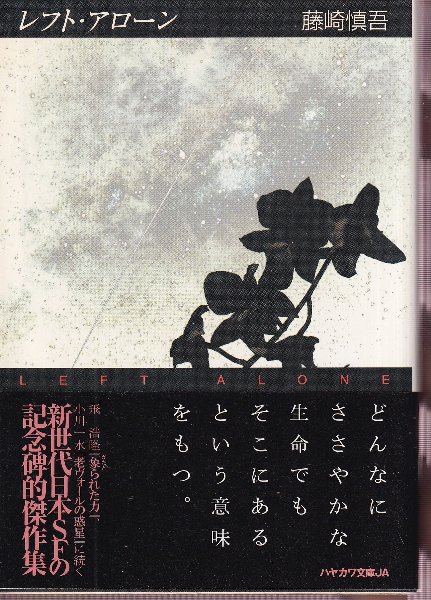 レフト・アローン
藤崎慎吾
LEFT ALONE
どんなに
ささやかな
生命でも
そこにある
という意味
をもつ。
飛 浩隆『象られた力』
小川一水『老ヴォールの惑星』に続く
新世代日本SFの
記念碑的傑作集
ハヤカワ文庫JA